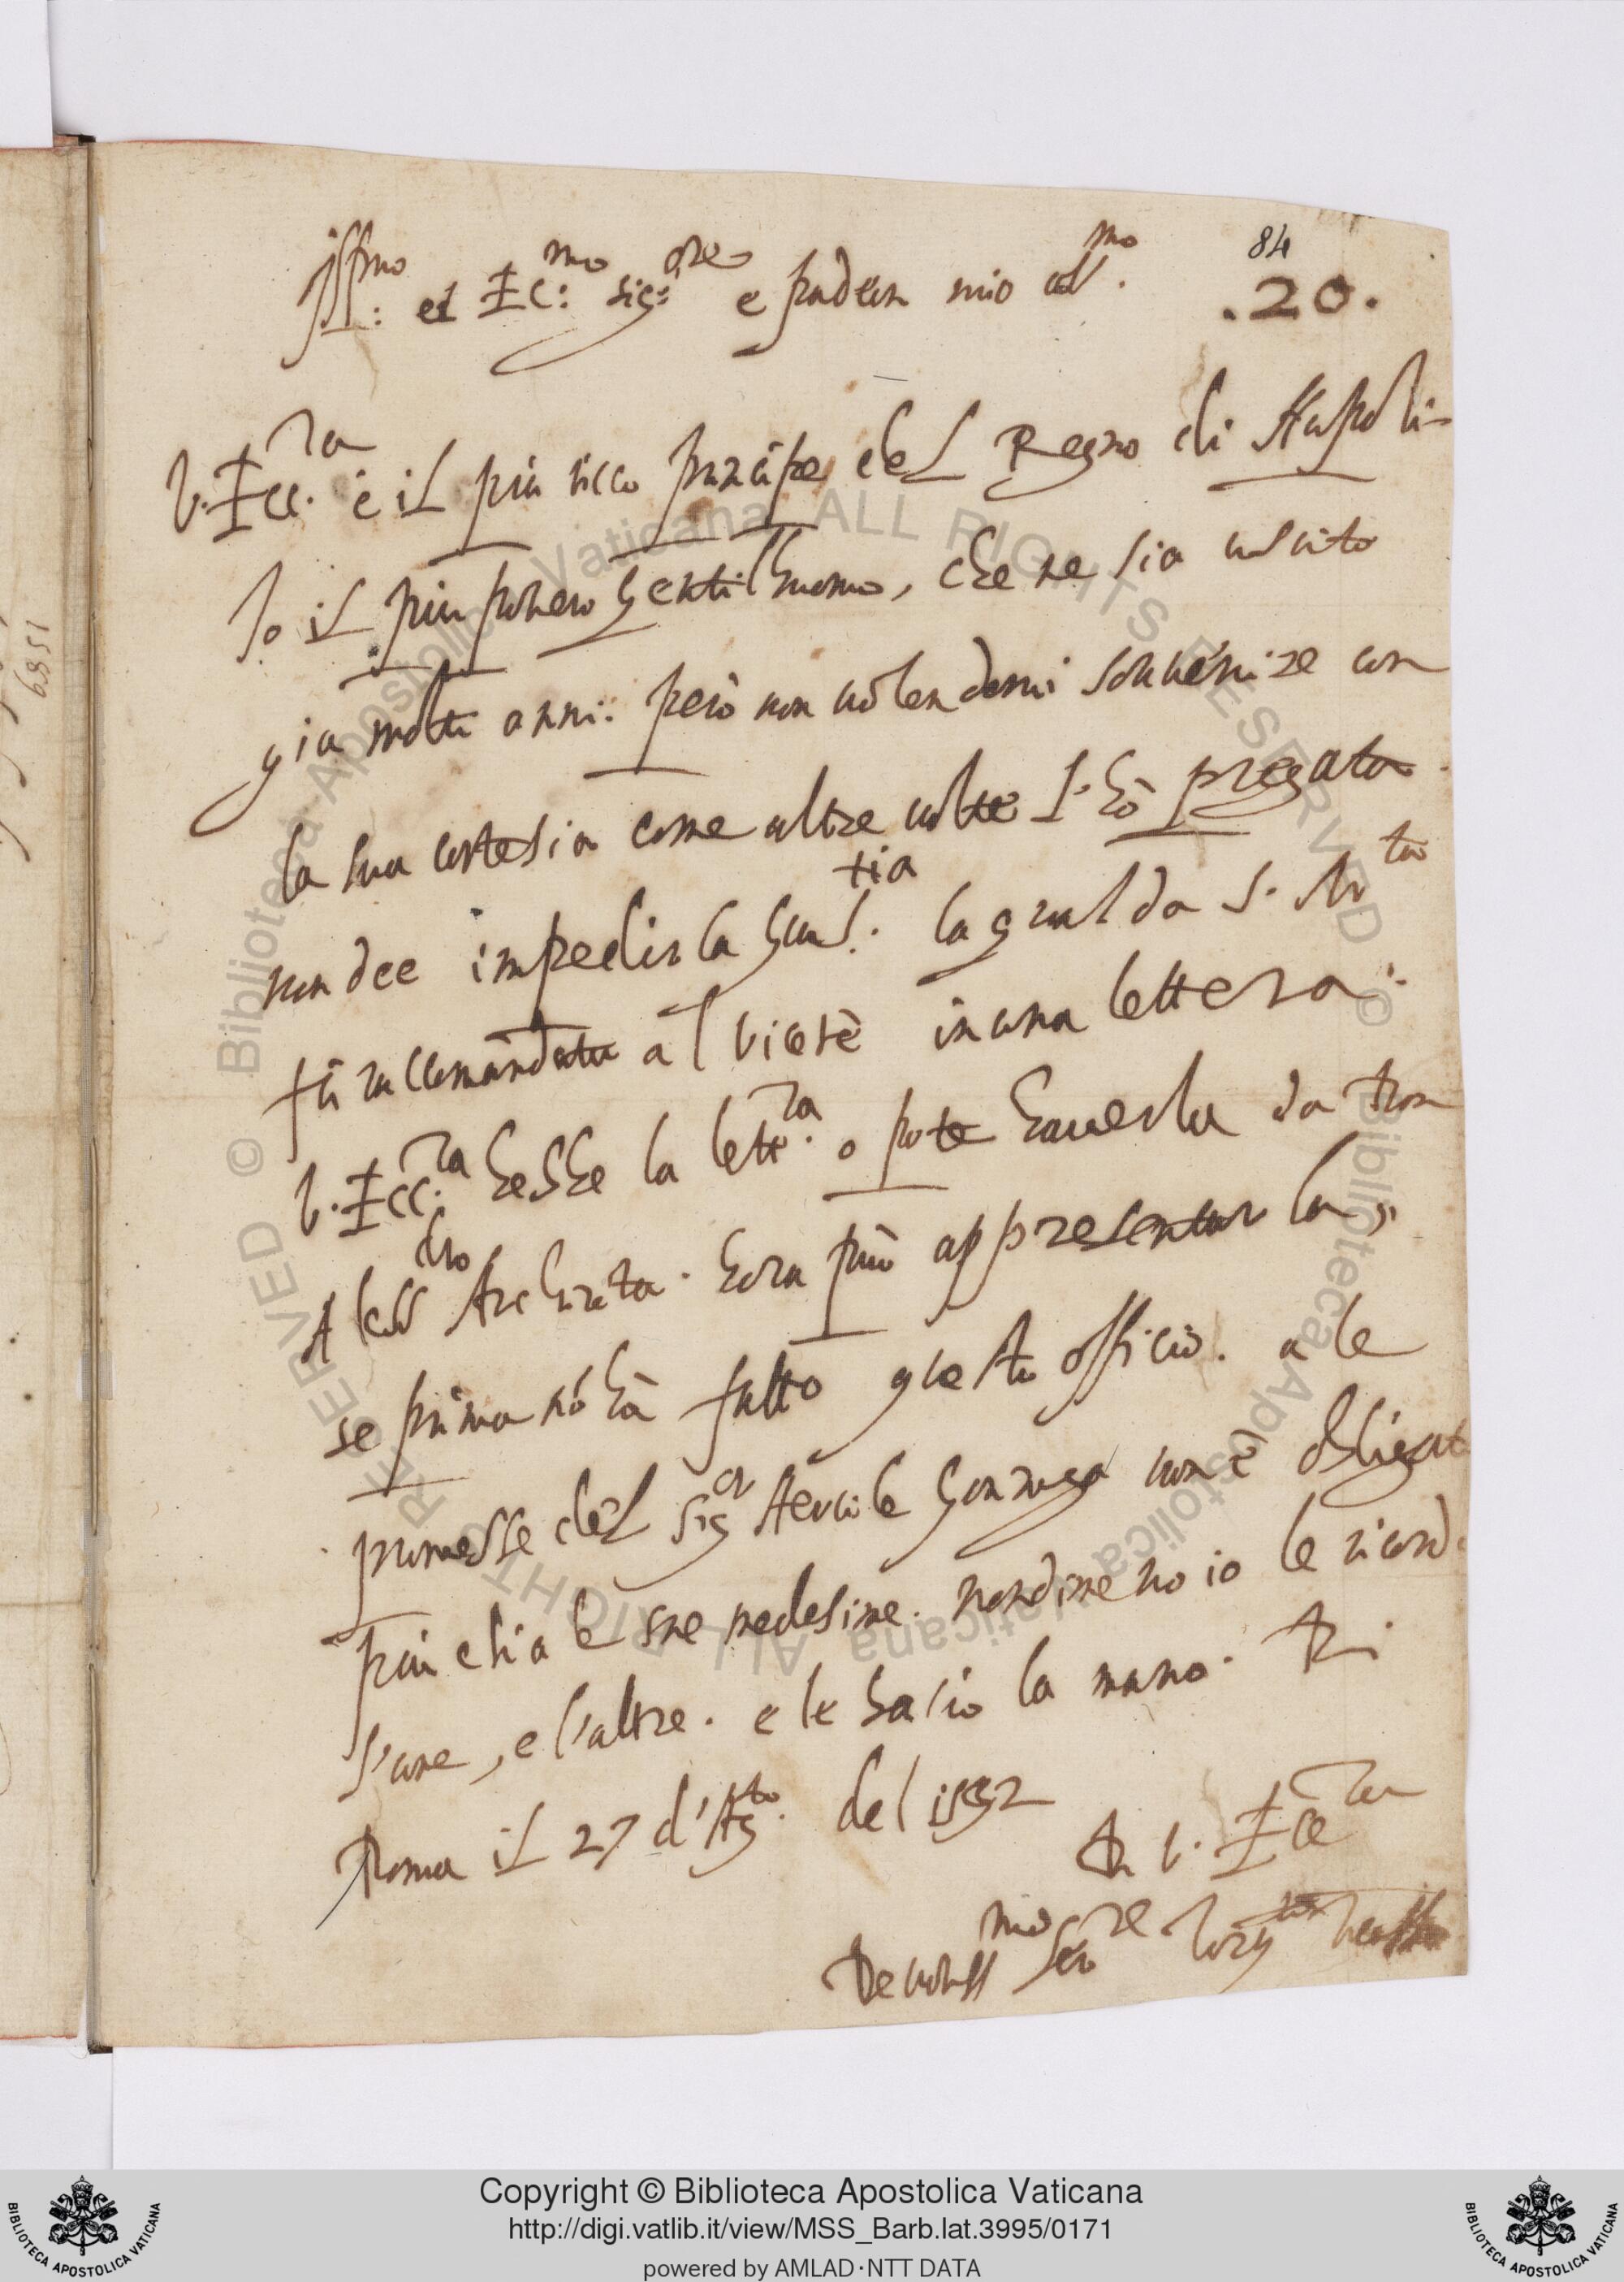 84
.20.
Ill.mo et Ecc.mo Sig.ore e padron mio col.mo
V. Ecc.za è il più ricco principe del Regno di Napoli
Io il più povero gentilhuomo, che ne sia uscito
già molti anni: però non volendomi souuenire con
la sua cortesia come altre volte l'hò pregata
non dee impedir la gius.tia la qual da S. M.tà
fù raccomandata al vicerè in una lettera:
V. Ecc.za hebbe la lett.ra o pote hauerla da Don
Aless.dro hora può appresentarla,
se prima nó hà fatto questo officio. a le
promesse del Sig.or Hercole Gonzaga non è obligat
più ch'a le sue medesime. nondimeno io le ricord
l'une, e l'altre. e le bacio la mano. Di
Roma il 27 d'Ag.to del 1592
Di V. Ecc.za
Devotiss.mo Ser.re Torq.to Tasso
1589
Copyright © Biblioteca Apostolica Vaticana
http://digi.vatlib.it/view/MSS_Barb.lat.3995/0171
powered by AMLAD·NTT DATA
BIBLIOTECA APOSTOLICA VATICANA
BIBLIOTECA APOSTOLICA VATICANA
© Biblioteca Apostolica Vaticana ALL RIGHTS RESERVED
© Biblioteca Apostolica Vaticana ALL RIGHTS RESERVED